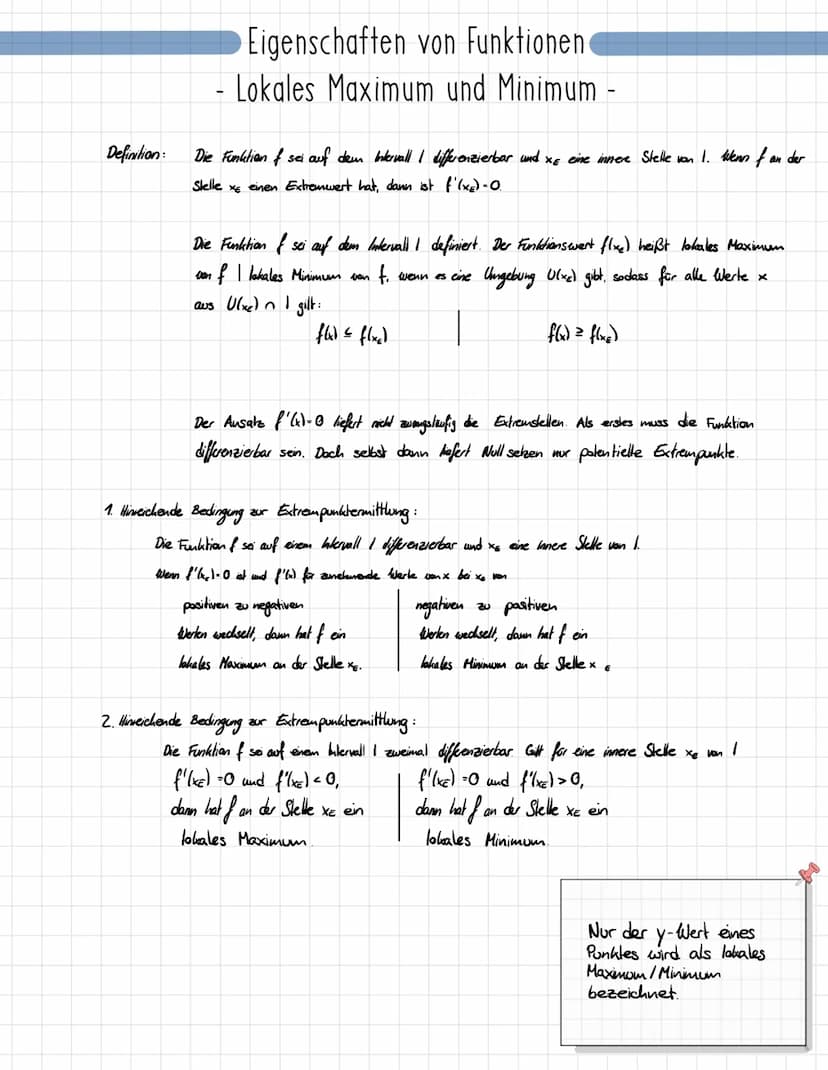 Eigenschaften von Funktionen
- Lokales Maximum und Minimum -
Definition: Die Funktion f sei auf dem Intervall I differenzierbar und xE eine innere Stelle von I. Wenn f an der
Stelle xE einen Extremwert hat, dann ist f'(xE)=0.
Die Funktion f sei auf dem Intervall I definiert. Der Funktionswert f(xE) heißt lokales Maximum
von f | lokales Minimum von f, wenn es eine Umgebung U(xE) gibt, sodass für alle Werte x
aus U(xE) ∩ I gilt:
f(x) ≤ f(xE) | f(x) ≥ f(xE)
Der Ansatz f'(x)=0 liefert nicht zwangsläufig die Extremstellen. Als erstes muss die Funktion
differenzierbar sein. Doch selbst dann liefert Null setzen nur potentielle Extrempunkte.
1. Hinreichende Bedingung zur Extrempunktermittlung:
Die Funktion f sei auf einem Intervall I differenzierbar und xE eine innere Stelle von I.
Wenn f'(xE)=0 ist und f'(x) für zunehmende Werte von x bei xE von
positiven zu negativen | negativen zu positiven
Werten wechselt, dann hat f ein | Werten wechselt, dann hat f ein
lokales Maximum an der Stelle xE. | lokales Minimum an der Stelle xE
2. Hinreichende Bedingung zur Extrempunktermittlung:
Die Funktion f sei auf einem Intervall I zweimal differenzierbar. Gilt für eine innere Stelle xE von I
f'(xE)=0 und f''(xE)<0, | f'(xE)=0 und f''(xE)>0,
dann hat f an der Stelle xE ein | dann hat f an der Stelle xE ein
lokales Maximum. | lokales Minimum.
Nur der y-Wert eines
Punktes wird als lokales
Maximum/Minimum
bezeichnet.